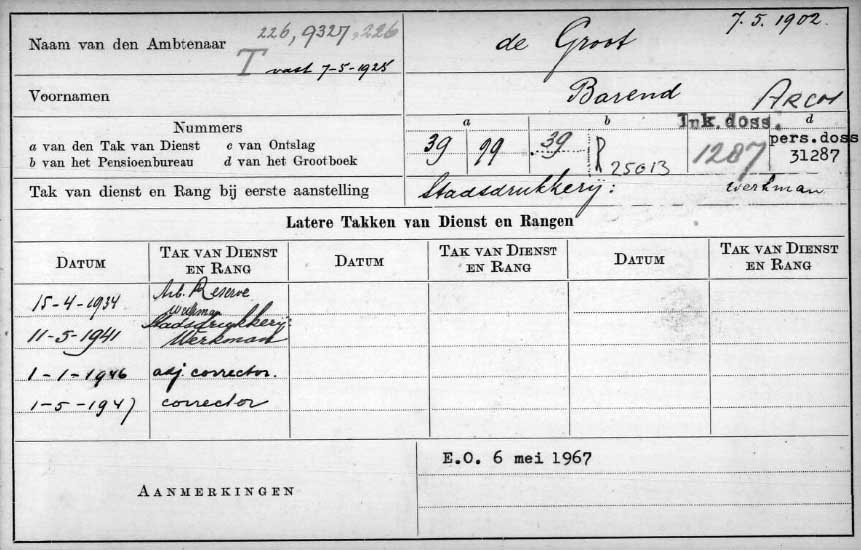 Naam van den Ambtenaar 226, 9327, 226 de Groot 7.5.1902.
T vast 7-5-1925
Voornamen Barend
Nummers a b Ink.doss. d
a van den Tak van Dienst c van Ontslag
b van het Pensioenbureau d van het Grootboek
39 99 39 R 25013 1287 pers.doss 31287
Tak van dienst en Rang bij eerste aanstelling Stadsdrukkerij: werkman
Latere Takken van Dienst en Rangen
DATUM TAK VAN DIENST EN RANG DATUM TAK VAN DIENST EN RANG DATUM TAK VAN DIENST EN RANG
15-4-1934 Arb. Reserve
werkman
11-5-1941 Stadsdrukkerij:
Werkman
1-1-1946 adj. corrector.
1-5-1947 corrector
AANMERKINGEN E.O. 6 mei 1967